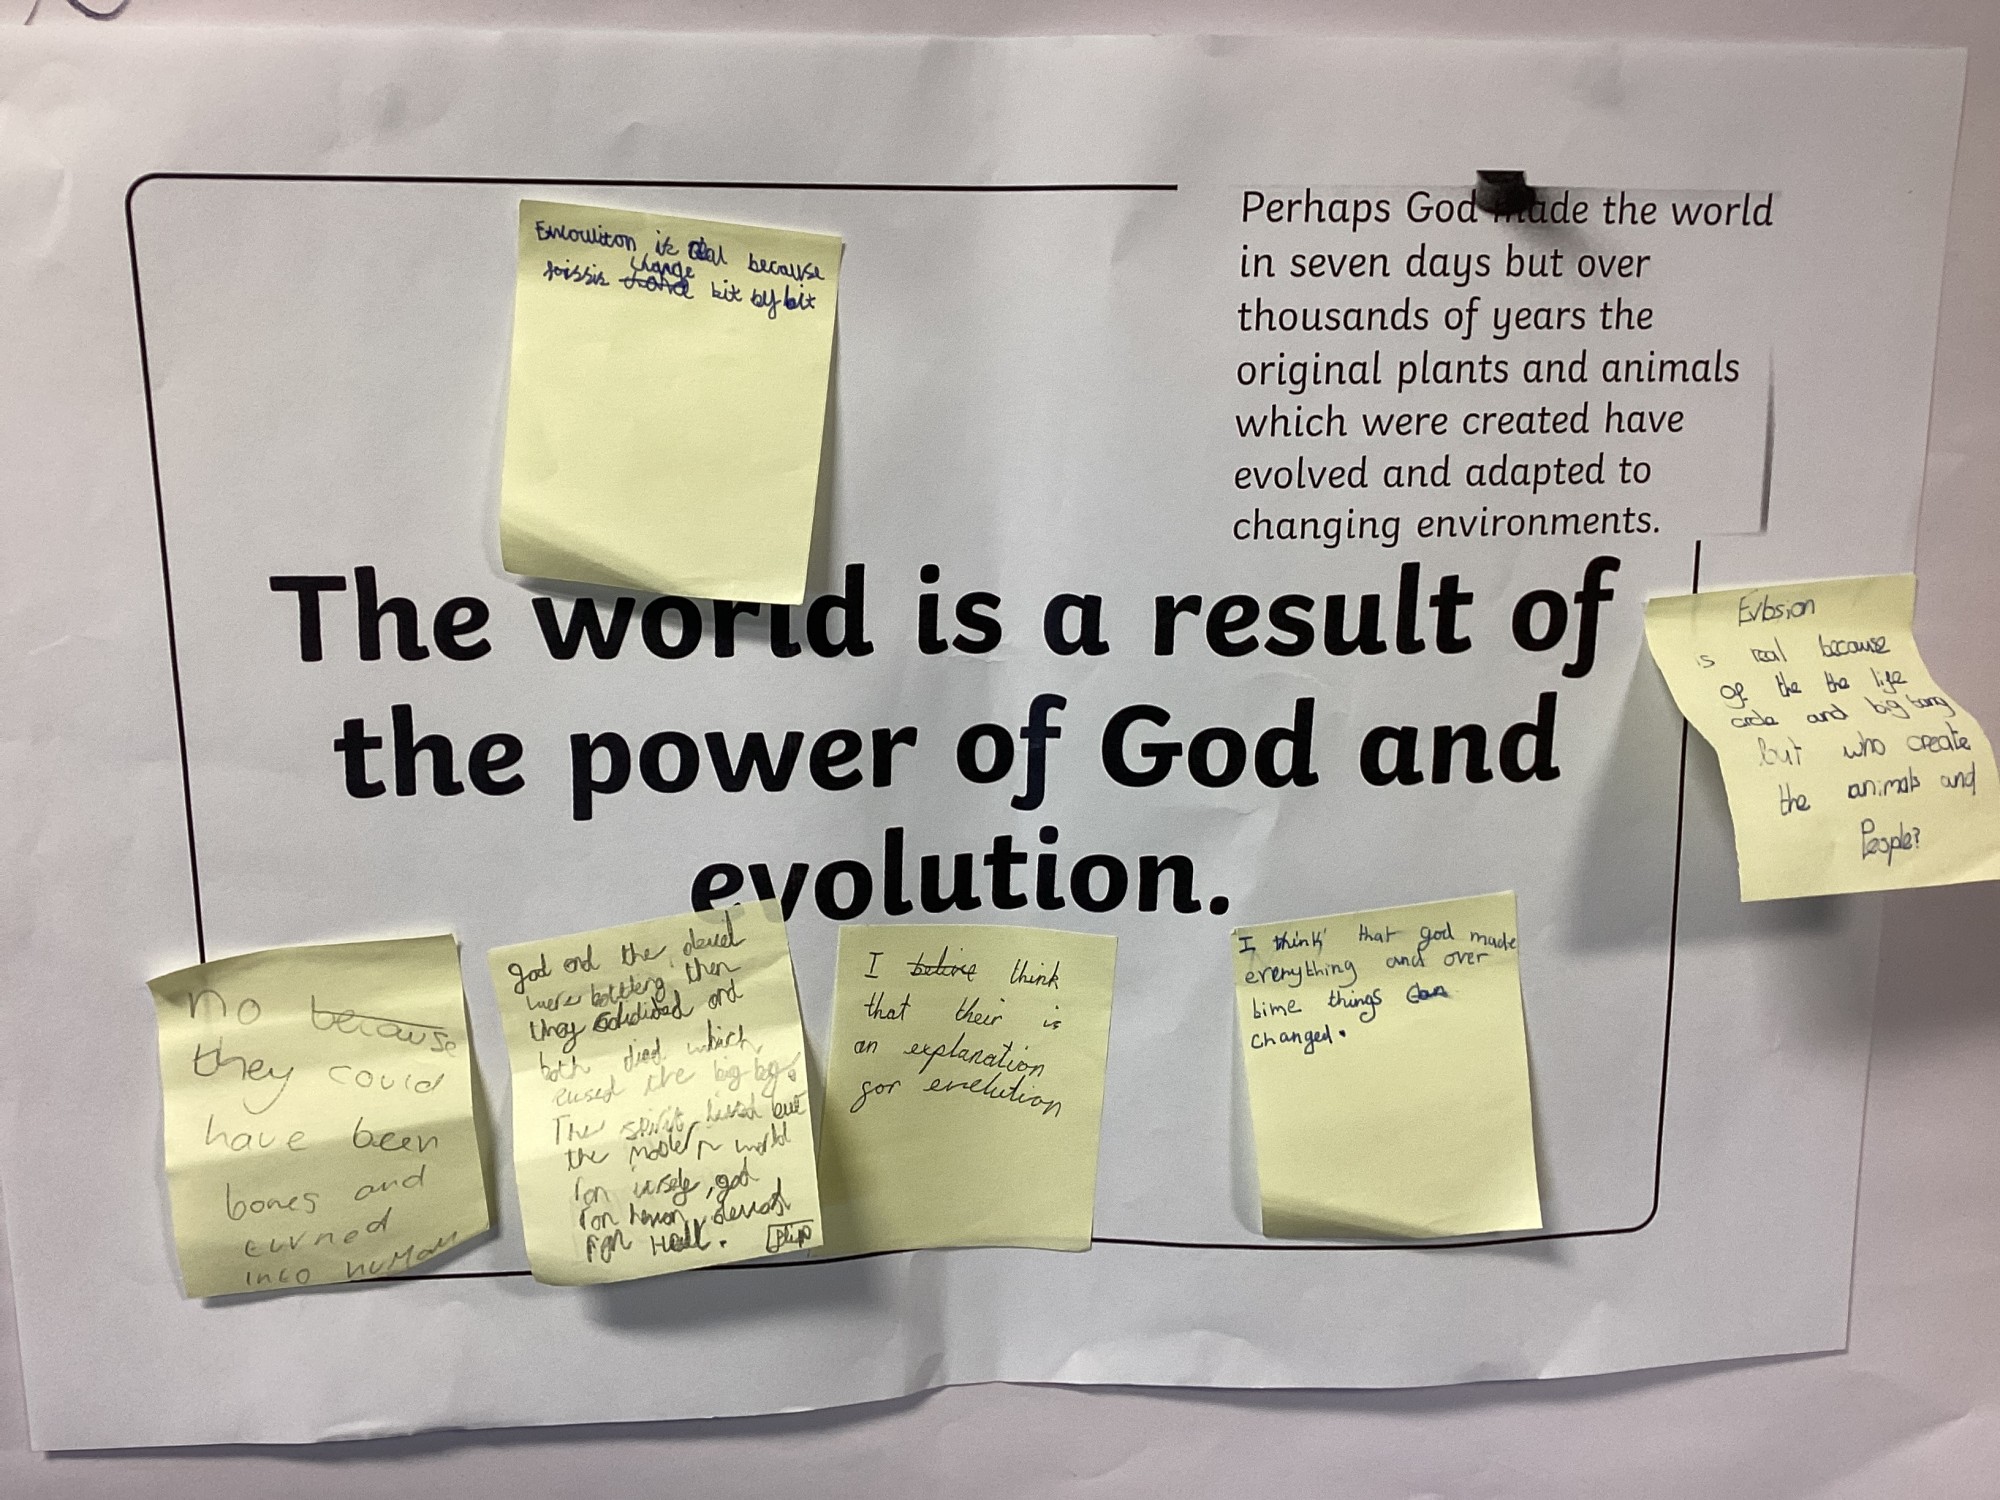 Perhaps God made the world
in seven days but over
thousands of years the
original plants and animals
which were created have
evolved and adapted to
changing environments.
Encouliton is real because
foissis change bit by bit
The world is a result of
the power of God and
evolution.
Evlosion
is real because
of the the life
circle and big bang
but who create
the animals and
People?
no because
they could
have been
bones and
turned
into human
god and the devil
were battling then
they and
both died which
the big
The spirit lived but
the modern world
ran , god
ran
ran Hell.
I belive think
that their is
an explanation
for evelution
I think that god made
everything and over
time things
changed.